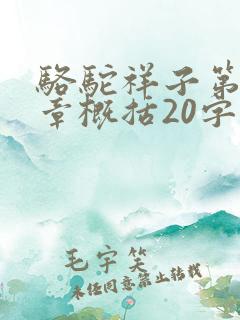 骆駝祥子第
章概括20字
毛宇笑
未经同意禁止转载